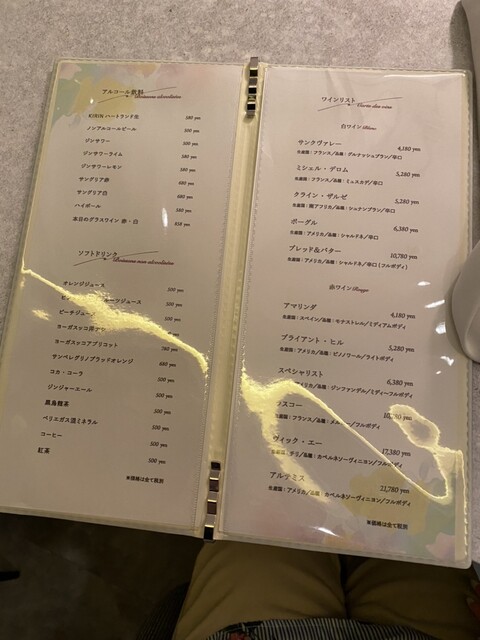 アルコール飲料
KIRIN ハートランド生
ノンアルコールビール
ジンサワー
ジンサワーライム
ジンサワーレモン
サングリア赤
サングリア白
ハイボール
本日のグラスワイン 赤・白 850 yen
ソフトドリンク
オレンジジュース 500 yen
ジュース 500 yen
ピーチジュース 500 yen
ヨーガスッコ
ヨーガスッコアプリコット
サンペレグリノブラッドオレンジ 680 yen
コカ・コーラ 500 yen
ジンジャーエール 500 yen
黒烏龍茶 500 yen
ペリエガス抜ミネラル 500 yen
コーヒー 500 yen
紅茶 500 yen
※価格は全て税別
ワインリスト Carte des vins
白ワイン Blanc
サンクヴァレー 4,180 yen
生産国：フランス/品種：グルナッシュブラン/辛口
ミシェル・デロム 5,280 yen
生産国：フランス/品種：ミュスカデ/辛口
クライン・ザルゼ 5,280 yen
生産国：南アフリカ/品種：シュナンブラン/辛口
ボーグル 6,380 yen
生産国：アメリカ/品種：シャルドネ/辛口
ブレッド＆バター 10,780 yen
生産国：アメリカ/品種：シャルドネ/辛口 (フルボディ)
赤ワイン Rouge
アマリンダ 4,180 yen
生産国：スペイン/品種：モナストレル/ミディアムボディ
ブライアント・ヒル 5,280 yen
生産国：アメリカ/品種：ピノノワール/ライトボディ
スペシャリスト 6,380 yen
生産国：アメリカ/品種：ジンファンデル/ミディーフルボディ
スコー
生産国：フランス/品種：メルロー/フルボディ
ヴィック・エー 17,380 yen
生産国：チリ/品種：カベルネソーヴィニヨン/フルボディ
アルテミス 21,780 yen
生産国：アメリカ/品種：カベルネソーヴィニヨン/フルボディ
※価格は全て税別